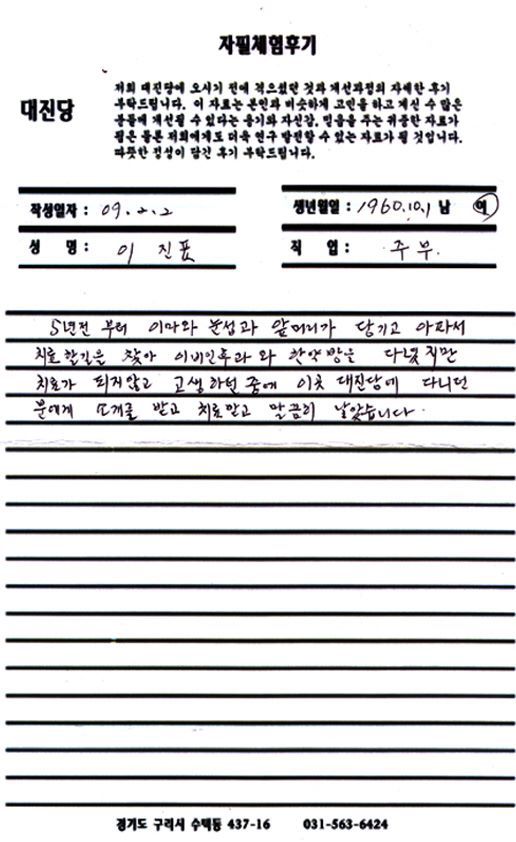 자필체험후기
대진당
저희 대진당에 오시기 전에 겪으셨던 것과 개선과정의 자세한 후기
부탁드립니다. 이 자료는 본인과 비슷하게 고민을 하고 계신 수 많은
분들께 개선될 수 있다는 용기와 자신감, 믿음을 주는 귀중한 자료가
됨은 물론 저희에게도 더욱 연구 발전할 수 있는 자료가 될 것입니다.
따뜻한 정성이 담긴 후기 부탁드립니다.
작성일자 : 09. 2. 2
생년월일 : 1960.10.1 남 여
성 명 : 이 진표
직 업 : 주부.
5년전 부터 이마와 눈섭과 앞머리가 당기고 아파서
치료할길을 찾아 이비인후과 와 한약방을 다녔지만
치료가 되지않고 고생하던중에 이웃 대진당에 다니던
분에게 소개를 받고 치료받고 말끔히 낳았습니다.
경기도 구리시 수택동 437-16 031-563-6424